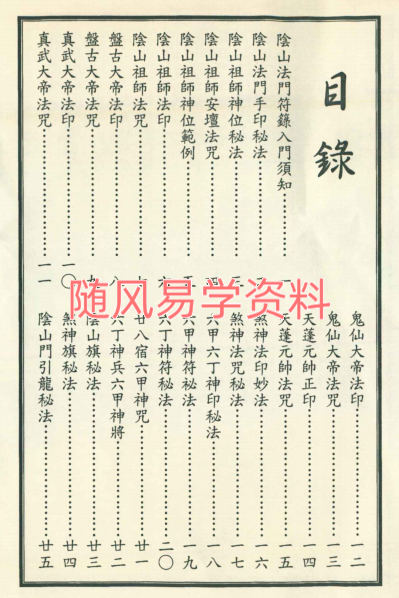 目錄
陰山法門符籙入門須知……一
陰山法門手印秘法……二
陰山祖師神位秘法……三
陰山祖師安壇法咒……四
陰山祖師神位範例……五
陰山祖師法印……六
陰山祖師法咒……七
盤古大帝法印……八
盤古大帝法咒……九
真武大帝法印……一〇
真武大帝法咒……一一
鬼仙大帝法印……一二
鬼仙大帝法咒……一三
天蓬元帥正印……一四
天蓬元帥法咒……一五
煞神法印妙法……一六
煞神法咒秘法……一七
六甲六丁神印秘法……一八
六甲神符秘法……一九
六丁神符秘法……二〇
廿八宿六甲神咒……廿一
六丁神兵六甲神將……廿二
陰山旗秘法……廿三
煞神旗秘法……廿四
陰山門引龍秘法……廿五
随风易学资料